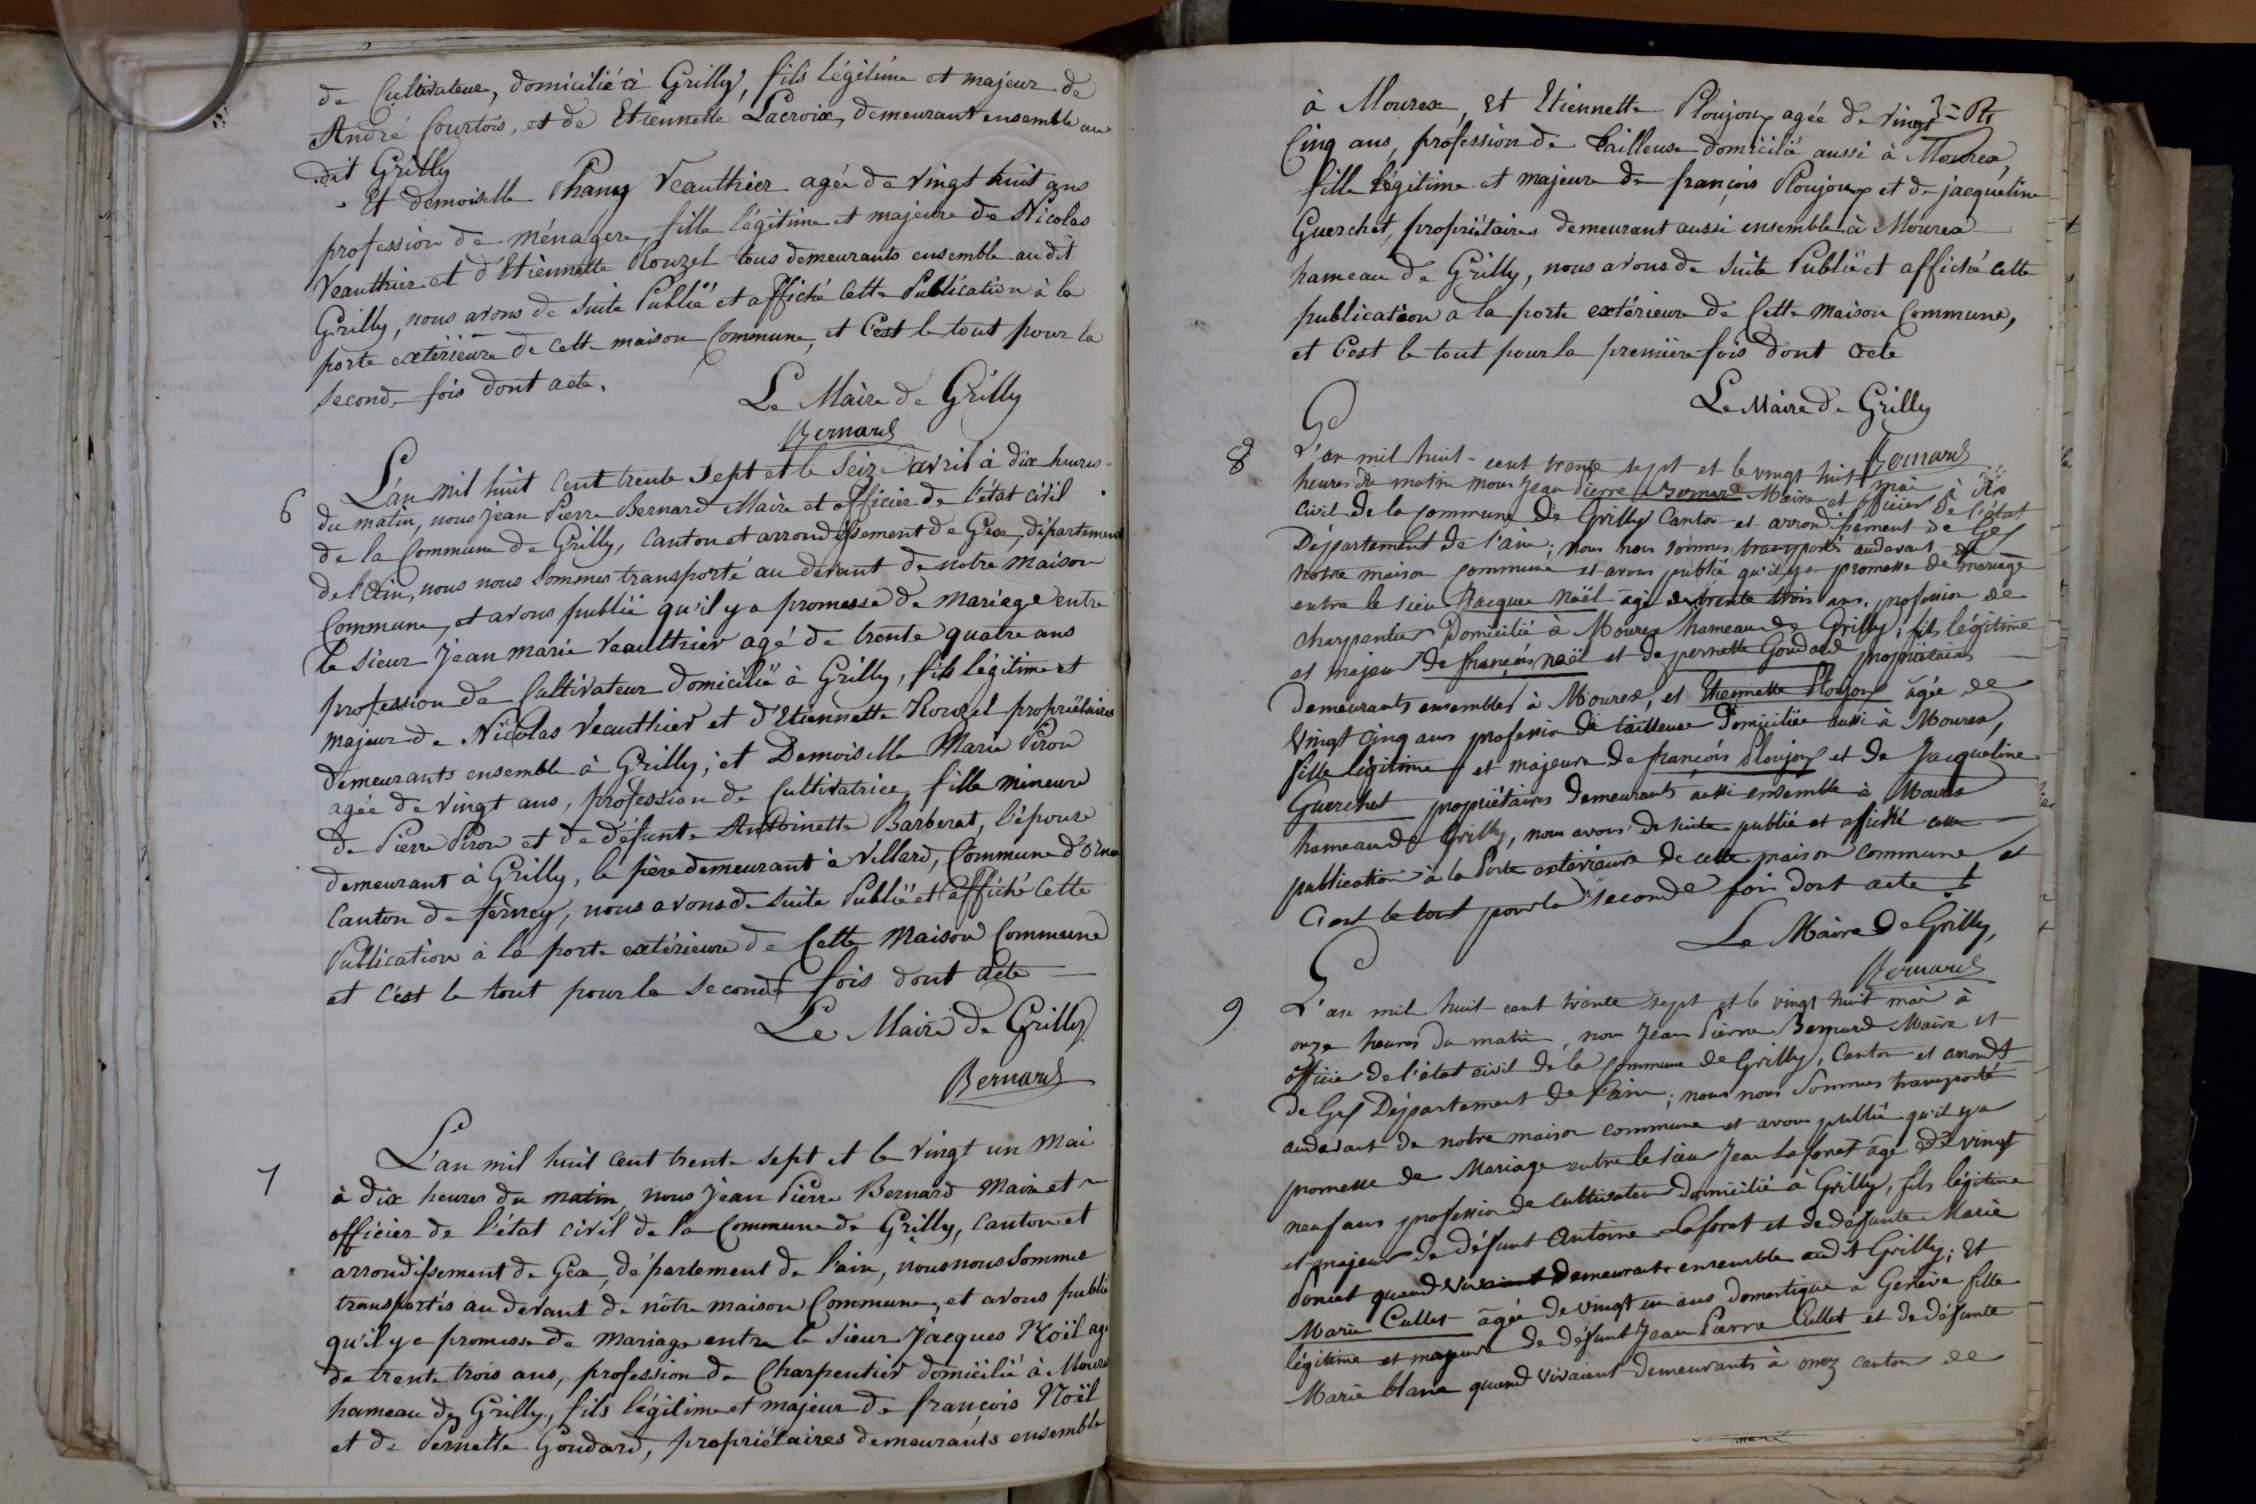 de Cultivateur, domicilié à Grilly, fils légitime et majeur de
André Courtois, et de Etiennette Lacroix, demeurant ensemble au
dit Grilly
Et demoiselle Phany Veauthier agée de vingt huit ans
profession de ménagere, fille légitime et majeure de Nicolas
Veauthier et d'Etiennette Rouzel tous demeurants ensemble audit
Grilly, nous avons de suite Publié et affiché cette Publication à la
porte extérieure de cette maison Commune, et C'est le tout pour la
second- fois dont acte.
Le Maire de Grilly
Bernard
6
L'an mil huit Cent trente Sept et le Seize avril à dix heures
du matin, nous Jean Pierre Bernard Maire et officier de l'état civil
de la Commune de Grilly, Canton et arrondissement de Gex, département
de l'Ain, nous nous sommes transporté au devant de notre maison
Commune, et avons publié qu'il y a promesse de mariage entre
le sieur Jean marie Veaulthier agé de trente quatre ans
profession de Cultivateur domicilié à Grilly, fils légitime et
majeur de Nicolas Veauthier et d'Etiennette Rouzel propriétaires
demeurants ensemble à Grilly; et Demoiselle Marie Piron
agée de vingt ans, profession de Cultivatrice, fille mineure
de Pierre Piron et de défunte Antoinette Barberat, l'épouse
demeurant à Grilly, le père demeurant à Villard, Commune d'Ornex
Canton de ferney, nous avons de suite Publié et affiché Cette
Publication à la porte extérieure de Cette Maison Commune
et c'est le tout pour la seconde fois dont Acte
Le Maire de Grilly
Bernard
7
L'an mil huit cent trente sept et le vingt un Mai
à dix heures du matin, nous Jean Pierre Bernard Maire et
officier de l'état civil de la Commune de Grilly, Canton et
arrondissement de Gex, département de l'ain, nous nous Sommes
transportés au devant de nôtre maison Commune, et avons publié
qu'il y a promesse de mariage entre le sieur Jacques Noïl agé
de trente trois ans, profession de Charpentier domicilié à Mourex
hameau de Grilly, fils légitime et majeur de françois Noïl
et de Pernette Goudard, propriétaires demeurants ensemble
à Mourex, et Etiennette Ploujoux agée de vingt
Cinq ans, profession de tailleuse domicilié aussi à Mourex,
fille légitime et majeure de françois Ploujoux et de jacqueline
Guerchet, propriétaires demeurant aussi ensemble à Mourex
hameau de Grilly, nous avons de Suite Publié et affiché cette
publication a la porte extérieure de Cette Maison Commune,
et C'est le tout pour la première fois dont acte
Le Maire de Grilly
Bernard
8
L'an mil huit-cent trente sept et le vingt huit mai à dix
heures du matin nous Jean Pierre Bernard Maire et officier de l'état
Civil de la Commune de Grilly Canton et arrondissement de Gex
Département de l'ain; nous nous sommes transportés audevant de
notre maison commune et avons publié qu'il y a promesse de mariage
entre le sieur Jacques Noël âgé de trente trois ans, profession de
charpentier Domicilié à Mourex hameau de Grilly; fils légitime
et majeur de françois Noël et de pernette Goudard propriétaires
demeurants ensembles à Mourex, et Etiennette Ploujoux âgée de
Vingt Cinq ans profession de tailleuse Domiciliée aussi à Mourex,
fille légitime et majeure de françois Ploujoux et de Jacqueline
Guerchet propriétaires demeurants aussi ensemble à Mourex
hameau de Grilly, nous avons de suite publié et affiché cette
publication à la Porte extérieure de cette maison commune, et
C'est le tout pour la seconde fois dont acte
Le Maire de Grilly,
Bernard
9
L'an mil huit cent trente sept et le vingt huit mai à
onze heures du matin, nous Jean Pierre Bernard Maire et
officier de l'état civil de la Commune de Grilly, Canton et arrondt
de Gex Département de l'ain; nous nous Sommes transporté
audevant de notre maison commune et avons publié qu'il y a
promesse de Mariage entre le sieur Jean Laforet âgé de vingt
neuf ans profession de cultivateur domicilié à Grilly, fils légitime
et majeur de défunt Antoine Laforet et de défunte Marie
Poncet quand vivaient demeurants ensemble audit Grilly; Et
Marie Cullet âgée de vingt un ans domestique à Genève fille
légitime et majeure de défunt Jean Pierre Cullet et de défunte
Marie blanc quand vivaient demeurants à onex canton de